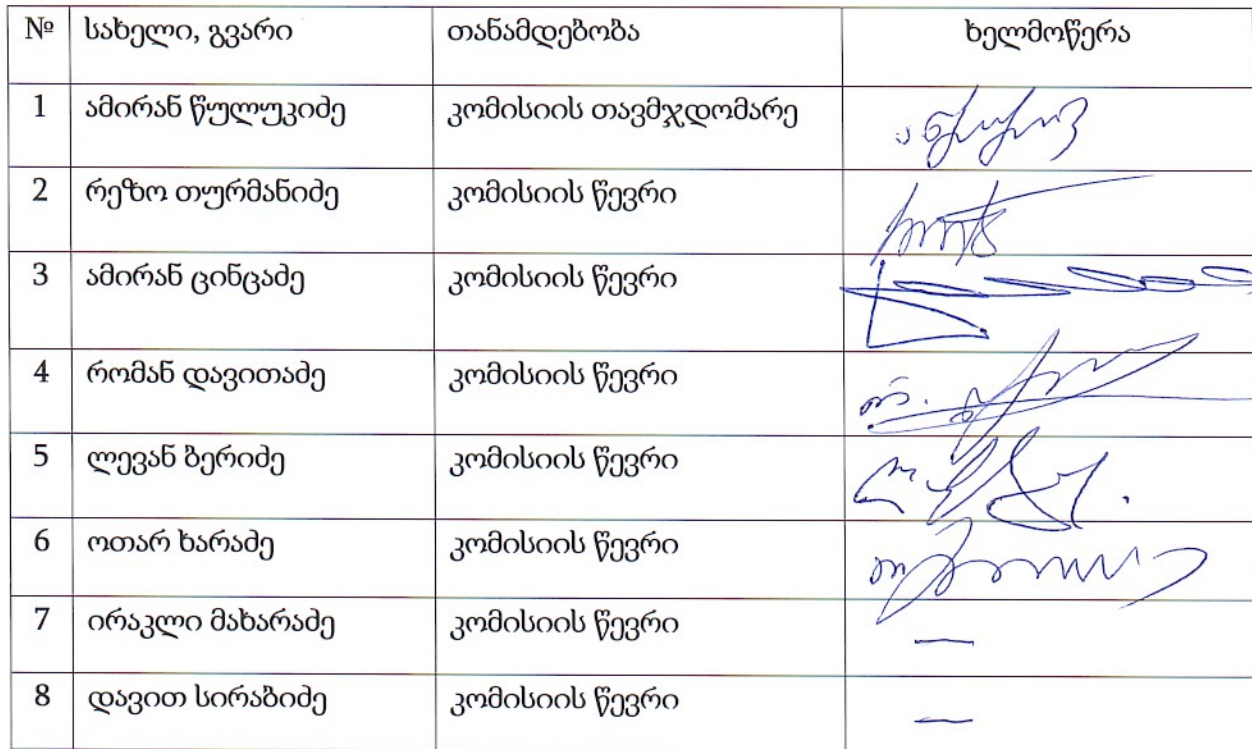 № სახელი, გვარი თანამდებობა ხელმოწერა
1 ამირან წულუკიძე კომისიის თავმჯდომარე
2 რეზო თურმანიძე კომისიის წევრი
3 ამირან ცინცაძე კომისიის წევრი
4 რომან დავითაძე კომისიის წევრი
5 ლევან ბერიძე კომისიის წევრი
6 ოთარ ხარაძე კომისიის წევრი
7 ირაკლი მახარაძე კომისიის წევრი —
8 დავით სირაბიძე კომისიის წევრი —